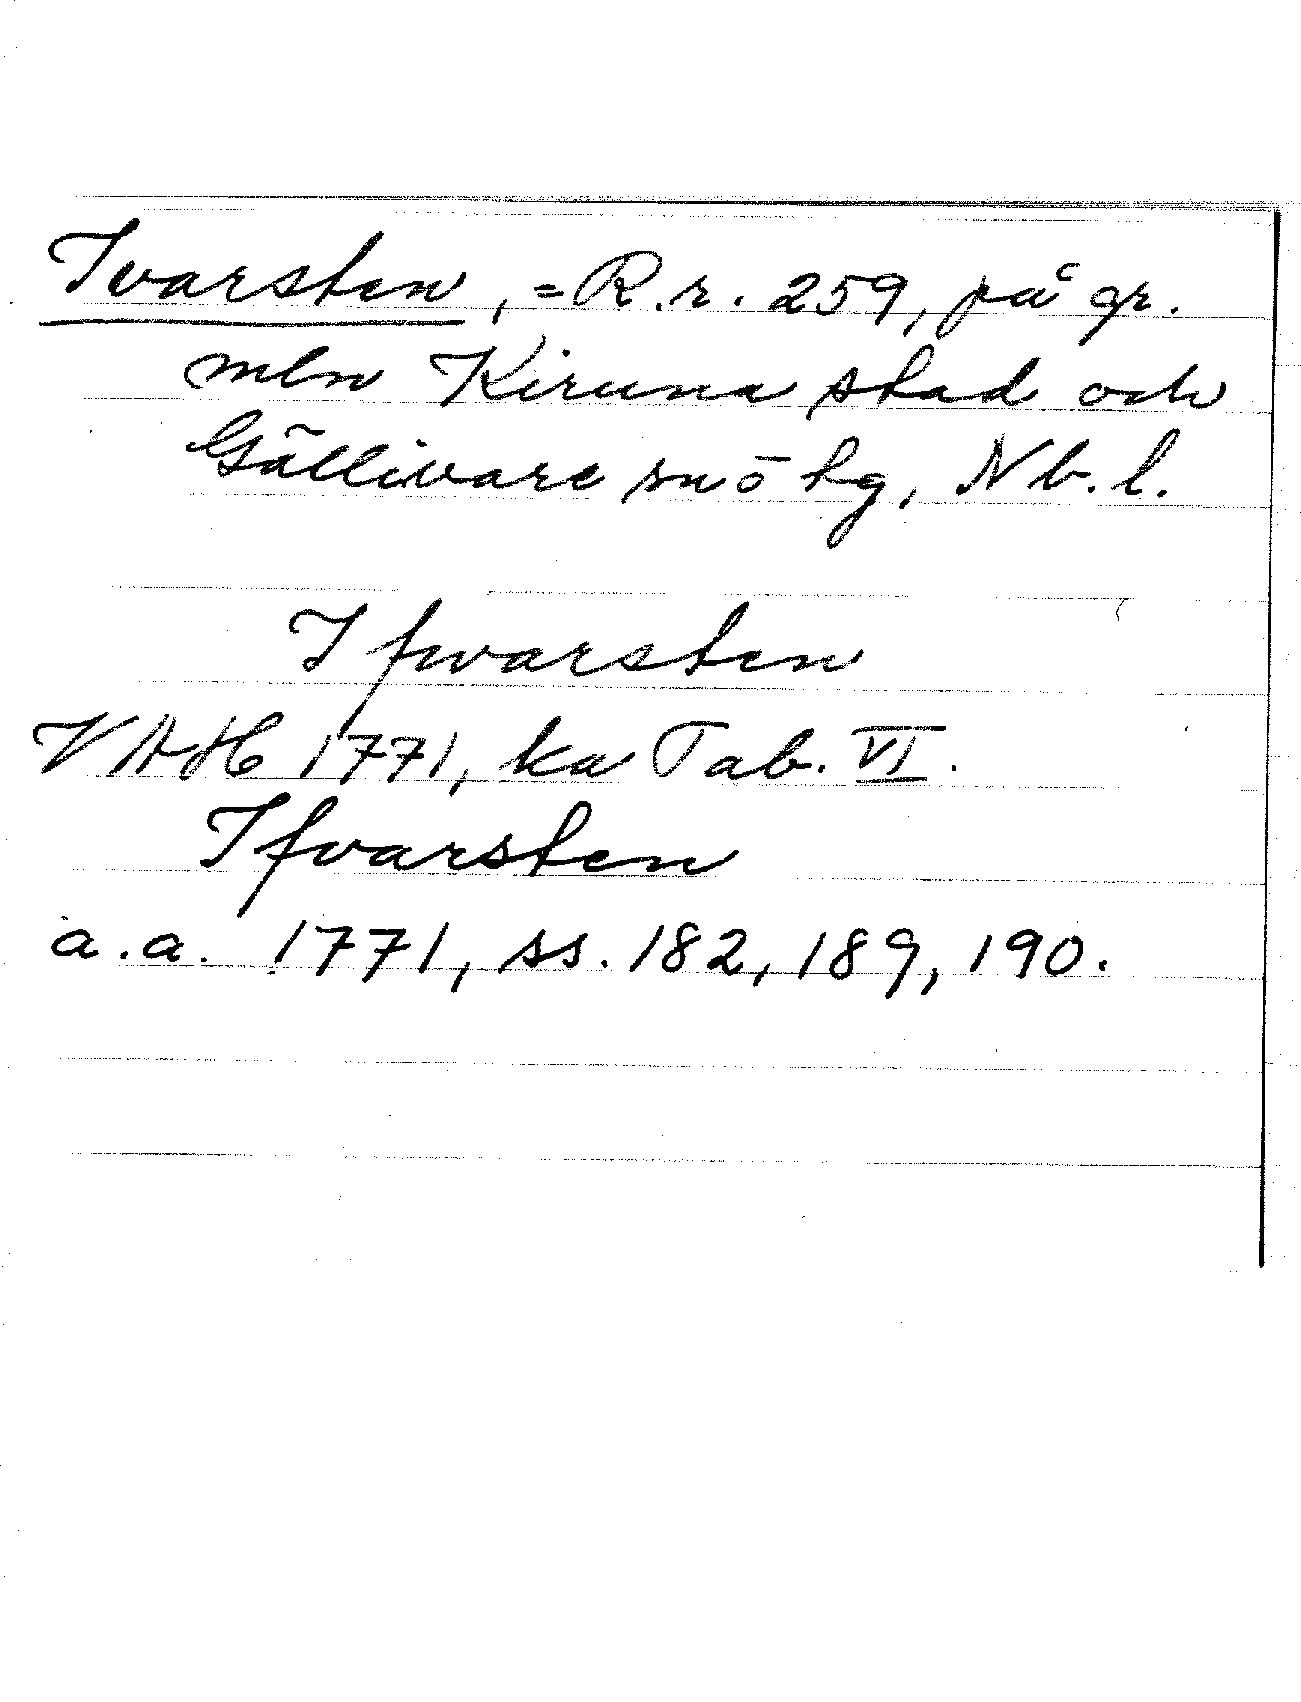 Ivarsten, = R.r. 259, på gr.
mln Kiruna stad och
Gällivare sn o hg, Nb. l.
Ifwarsten
VAH 1771, ka Tab. VI.
Ifvarsten
a.a. 1771, ss. 182, 189, 190.